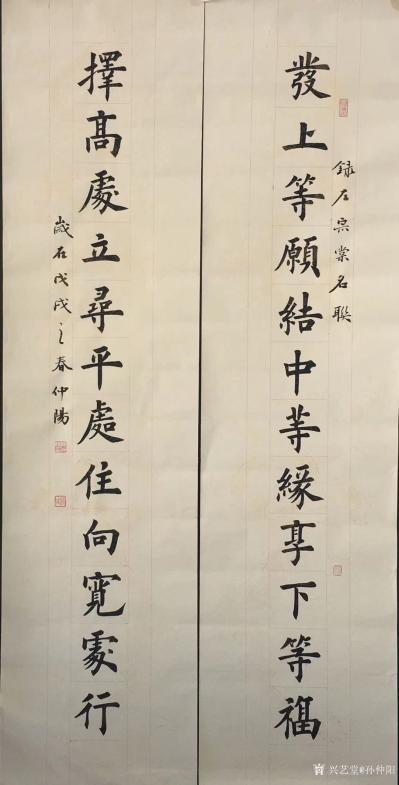 發上等願結中等緣享下等福
錄左宗棠名聯
擇高處立尋平處住向寬處行
歲在戊戌之春仲陽
兴艺堂@孙仲阳